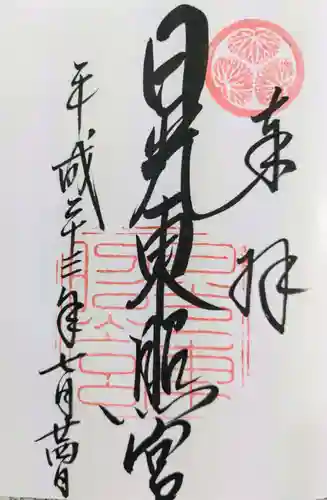 奉拝
日光東照宮
平成二十三年七月廿四日